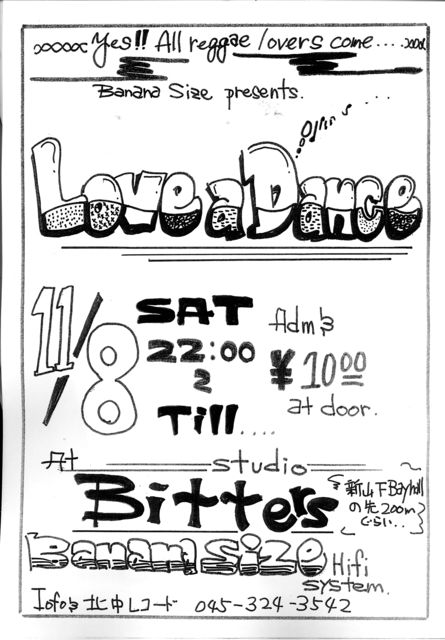 xxxxx Yes!! All reggae lovers come.... xxxx
Banana Size presents.
Love a Dance
11/8 SAT
22:00
Till....
Adm's
¥1000
at door.
At studio
Bitters
新山下Bayhall
の先200m
ぐらい...
Banana size Hifi
system.
Info's 北中レコード 045-324-3542